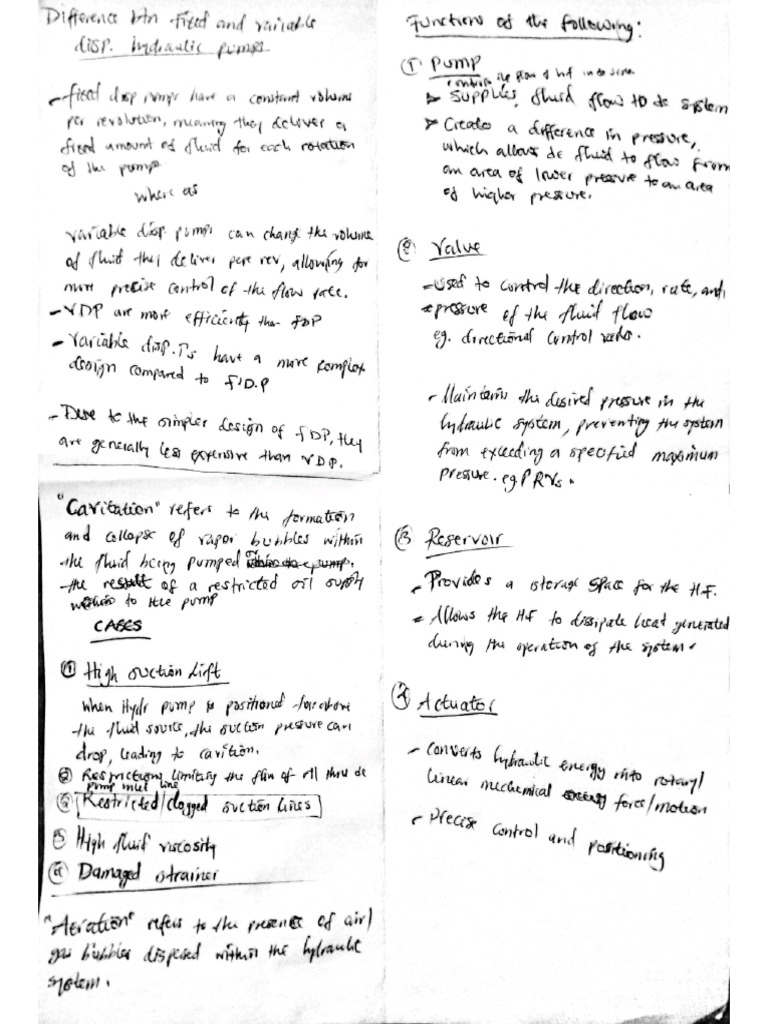 Difference btn Fixed and variable
disp. hydraulic pumps
- fixed disp pumps have a constant volume
per revolution, meaning they deliver a
fixed amount of fluid for each rotation
of the pump.
where as
Variable disp. pumps can change the volume
of fluid they deliver pere rev, allowing for
more precise control of the flow rate.
- VDP are more efficiently than FDP
- Variable disp. Ps have a more complex
design compared to F.D.P
- Due to the simpler design of FDP, they
are generally less expensive than VDP.
"Cavitation" refers to the formation
and collapse of vapor bubbles within
the fluid being pumped
the result of a restricted oil supply
to the pump
CASES
① High suction lift
when Hydr pump is positioned far above
the fluid source, the suction pressure can
drop, leading to cavition.
② Restrictions limiting the flow of oil thru de
pump inlet line
Restricted/clogged suction lines
③ High fluid viscosity
④ Damaged strainer
"Aeration" refers to the presence of air/
gas bubbles dispersed within the hydraulic
system.
Functions of the following:
① Pump
the flow of hf in
➤ Supplies, fluid flow to de system
➤ Creates a difference in pressure,
which allows de fluid to flow from
an area of lower pressure to an area
of higher pressure.
② Valve
- Used to control the direction, rate, and
pressure of the fluid flow
eg. directional control valves.
- Maintains the desired pressure in the
hydraulic system, preventing the system
from exceeding a specified maximum
pressure. eg PRVs.
③ Reservoir
- Provides a storage space for the H.F.
- Allows the H.F to dissipate heat generated
during the operation of the system.
④ Actuator
- Converts hydraulic energy into rotary/
linear mechanical force/motion
- Precise control and positioning